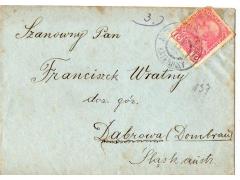 3.
Szanowny Pan
Franciszek Wratny
doz. gór.
157
Dąbrowa (Dombrau)
Śląsk austr.